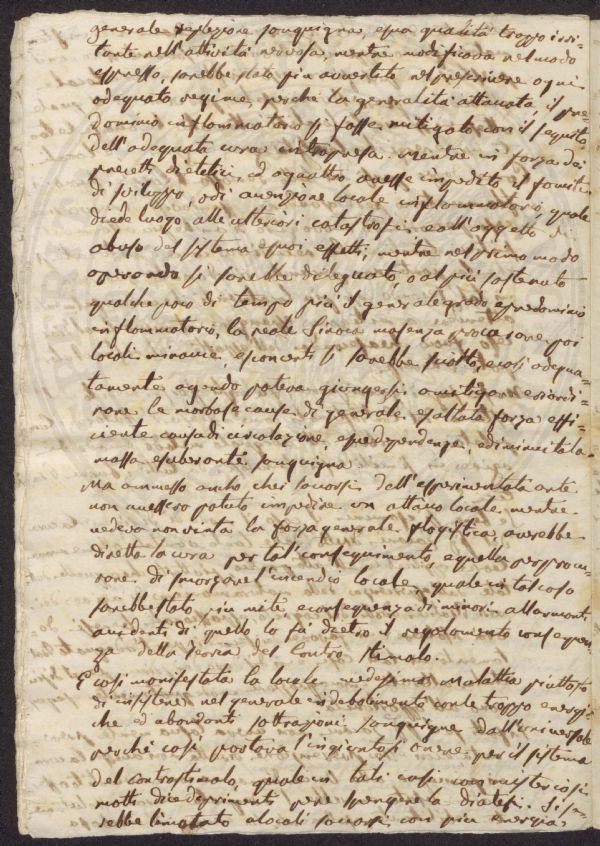 generale replezione sanguigna, essa qualità troppo irri-
tante nell'attività nervosa, mentre modificata nel modo
espresso, sarebbe stato piu avvertito nel prescrivere ogni
adequato regime, perché la generalità attaccata, il pre-
dominio inflammatorio si fosse mitigato con il seguito
dell'adequata cura intrapresa mentre in forza dei
precetti dietetici, ed avesse impedito il fomite
di sviluppo, o di locale inflammatorio, quale
diede luogo alle ulteriori catastrofi e all'oggetto di
abuso del sistema e suoi effetti, mentre nel primo modo
operando si sarebbe dileguato, o al più sostenuto
qualche poco di tempo più il general grado e predominio
inflammatorio, la reale Sinoca ma senza procurare poi
locali minaccie, e sconcerti si sarebbe sciolto, e così adequa-
tamente agendo poteva giungersi a mitigare
le morbose cause di generale esaltata forza effi-
ciente causa di circolazione, e dipendenze, e diminuita la
massa esuberante sanguigna
Ma ammesso ancho che i soccorsi dell'esperimentata arte
non avessero potuto impedire un attacco locale mentre
vedeva non vinta la forza generale flogistica, averebbe
diretta la cura per tal conseguimento, e quella per procu-
rare di smorzare l'incendio locale, quale in tal caso
sarebbe stato piu mite, e conseguenza di minori allarmanti
accidenti di quello lo fù dietro il regolamento conseguen-
za della Teoria del Contro stimolo.
E così manifestata la locale medesima Malattia piuttosto
di insistere nel generale indebolimento con le troppo energi-
che ed abondanti sottrazioni sanguigne dall'universale
perché così portava l'ingiuntosi onere per il sistema
del controstimolo, quale in tali casi con misteriosi
motti dice deprimenti pene spengere la diatesi. Si sa-
rebbe limitato a locali soccorsi con più energia,